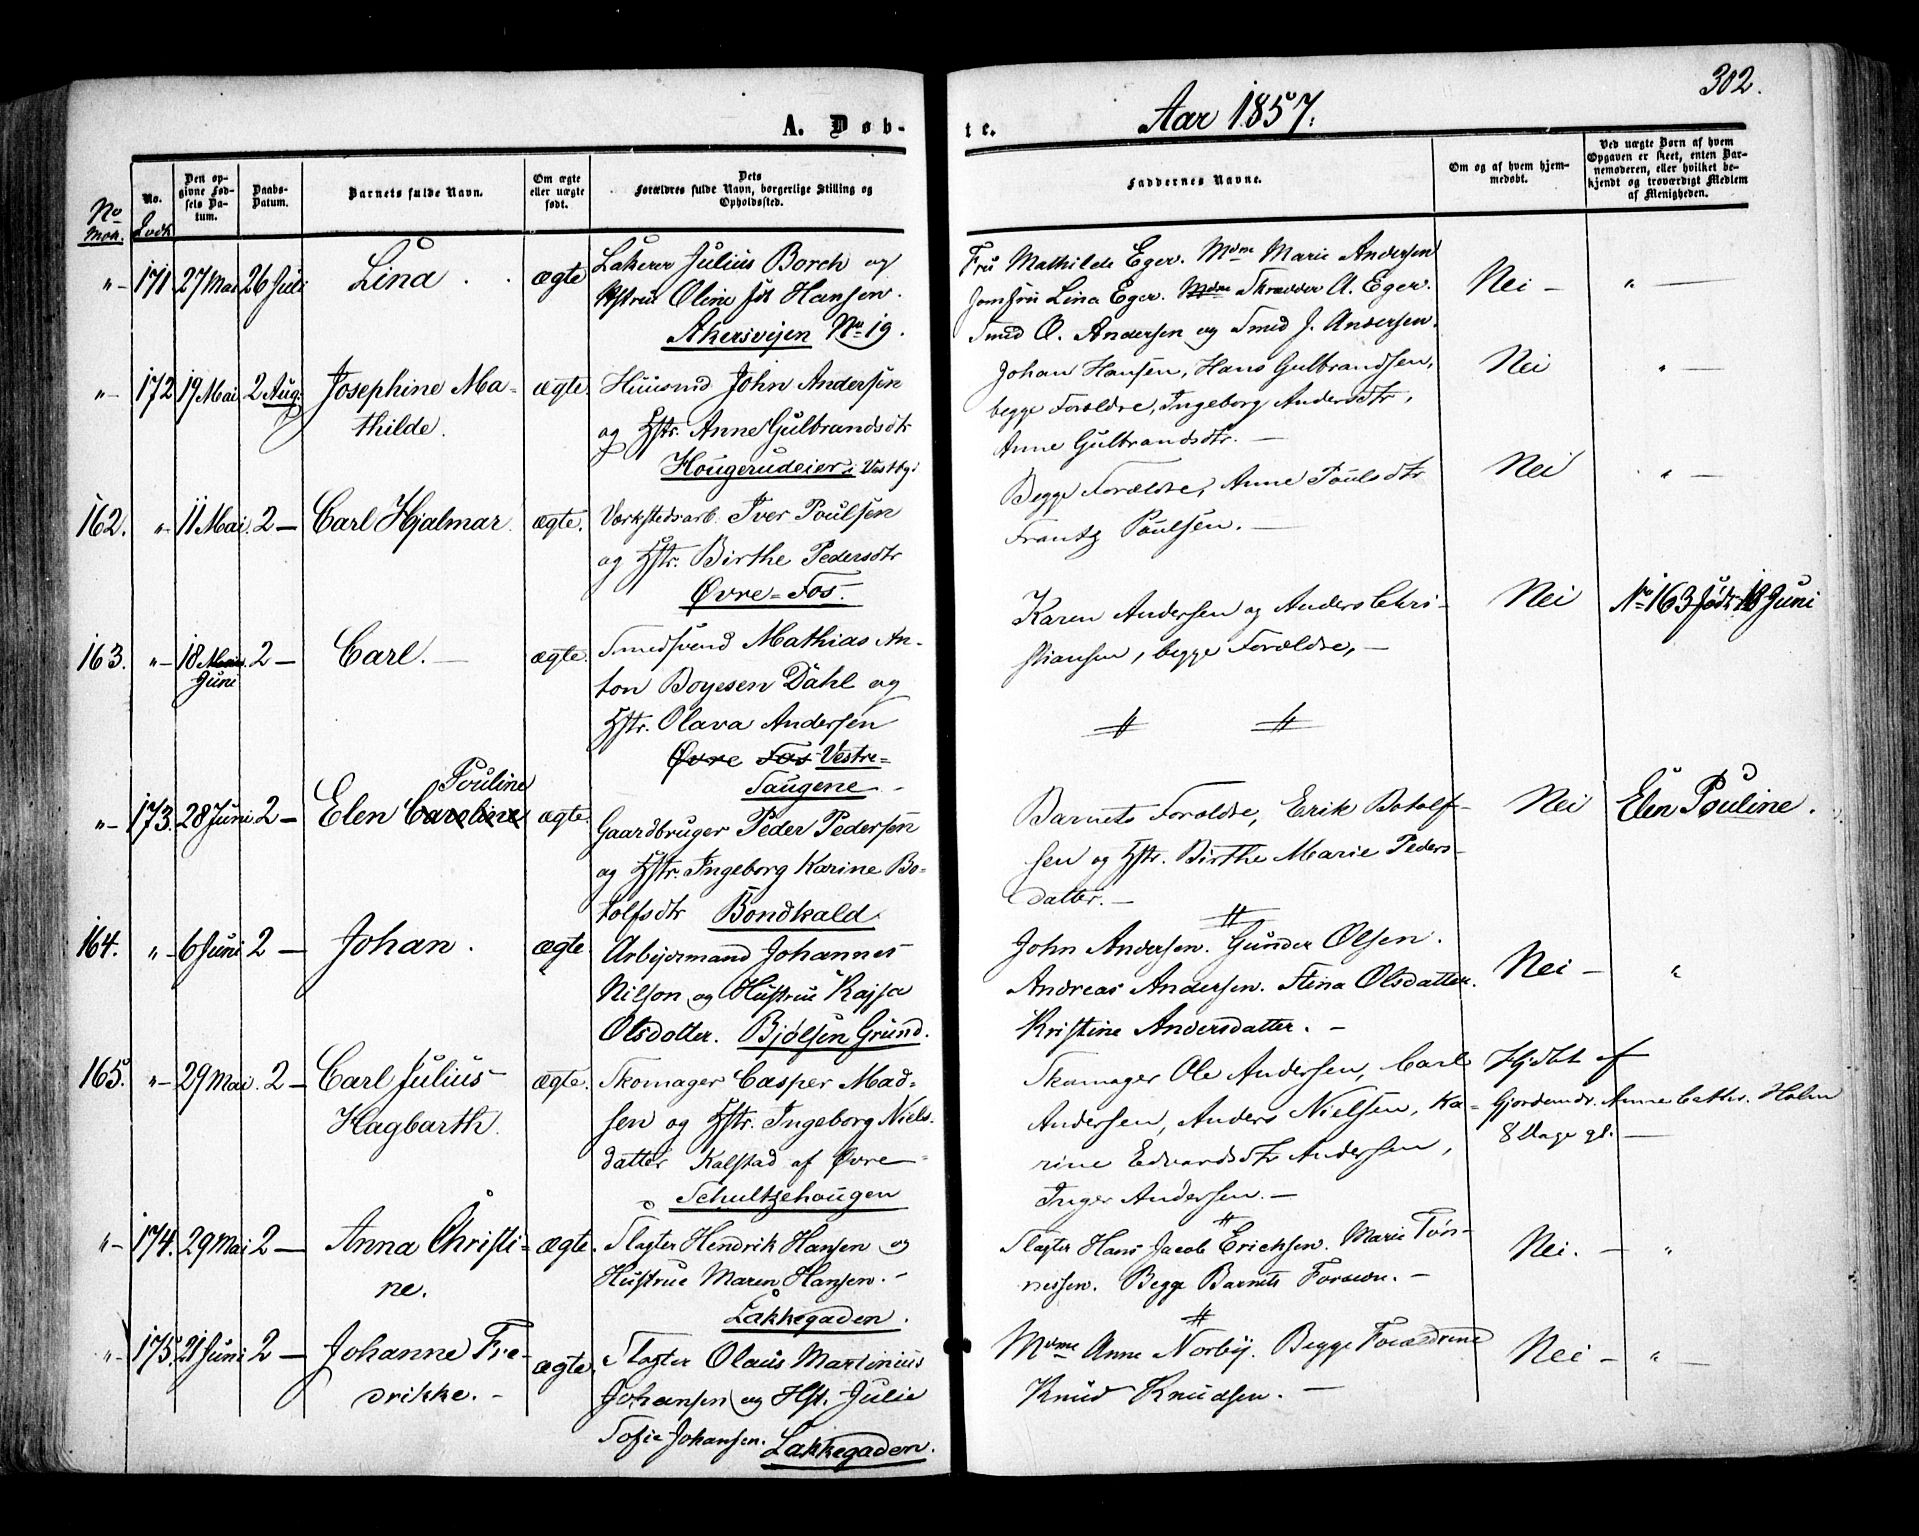 302.
A. Døb-
te.
Aar 1857.
No.
Den op-
givne Fød-
sels Da-
tum.
Daabs-
Datum.
Barnets fulde Navn.
Om ægte
eller uægte
født.
Dets
Forældres fulde Navn, borgerlige Stilling og
Opholdssted.
Faddernes Navne.
Om og af hvem hjem-
medøbt.
Ved uægte Børn af hvem
Opgaven er skeet, enten Bar-
nemoderen, eller hvilket be-
kjendt og troværdigt Medlem
af Menigheden.
No
" 171 27 Mai 26 Juli Lina ægte Lakerer Julius Borch og
Oline Hansen.
Akersvejen No 19.
Fru Mathilde Eger. Mdme Marie Andersen
Jomfru Lina Eger. Mdme Skrædder A. Eger.
Smed O. Andersen og Smed J. Andersen.
Nei — " —
" 172 19 Mai 2 Aug. Josephine Ma-
thilde.
ægte. Huusmd John Andersen
og Hstr. Anne Gulbrandsdtr
Hougerudeier i Vestby
Johan Hansen, Hans Gulbrandsen,
begge Forældre, Ingeborg Andersdtr,
Anne Gulbrandsdtr. —
Nei " —
162. " 11 Mai. 2 — Carl Hjalmar. ægte. Værkstedsarb. Iver Poulsen
og Hstr. Birthe Pedersdtr
Øvre-Fos.
Begge Forældre, Anne Poulsdtr
Frantz Poulsen. —
Nei " —
163. " 18 Mai. 2 — Carl. — ægte.
Juni
Smedsvend Mathias An-
ton Boyesen Dahl og
Hstr. Olava Andersen
Øvre Fos Vestre-
Taugene —
Karen Andersen og Anders Chri-
stiansen, begge Forældre, —
Nei No 163 født 18 Juni
Pouline
" 173. 28 Juni 2 — Elen Caroline ægte.
Gaardbruger Peder Pedersen
og Hstr. Ingeborg Karine Bo-
tolfsdtr Bondkald.
Barnets Forældre, Erik Botolf-
sen og Hstr. Birthe Marie Peders-
datter. —
Nei Elen Pouline.
164. " 6 Juni 2 — Johan. ægte. Arbejdermand Johannes
Nilson og Hustrue Kajsa
Olsdotter. Bjølsen Grund.
John Andersen. Gunder Olsen.
Andreas Andersen. Stina Olsdatter.
Kristine Andersdatter. —
Nei — "
165. " 29 Mai. 2 — Carl Julius
Hagbarth.
ægte. Skomager Casper Mad-
sen og Hstr. Ingeborg Niels-
datter Kalstad af Øvre-
Schultzehougen
Skomager Ole Andersen, Carl
Andersen, Anders Nielsen, Ka-
rine Edvardsdtr Andersen,
Inger Andersen. —
Hjdbt af
Gjordemdr. Anne Cathr. Holm
8 Dage gl. —
" 174. 29 Mai 2 — Anna Christi-
ne.
ægte. Slagter Hendrik Hansen og
Hustrue Maren Hansen. —
Lakkegaden.
Slagter Hans Jacob Ericksen. Marie Tøn-
nessen. Begge Barnets Forældre. —
Nei. — "
" 175. 21 Juni 2 — Johanne Fre-
drikke. —
ægte. Slagter Olaus Martinius
Johansen og Hst. Julie
Sofie Johansen. Lakkegaden.
Mdme Anne Norby. Begge Forældrene
Knud Knudsen. —
Nei — " —